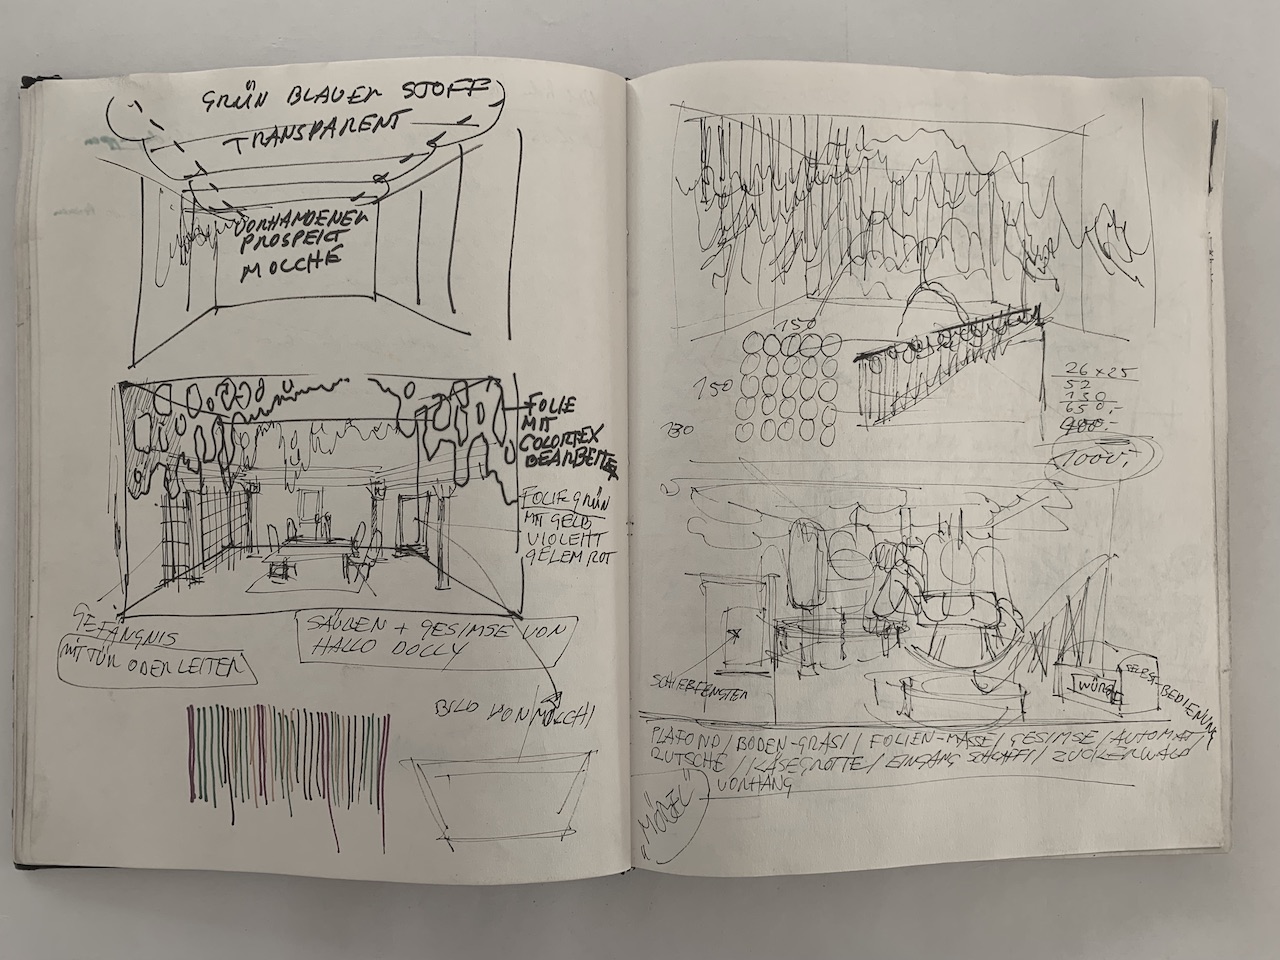 GRÜN BLAUER STOFF
TRANSPARENT
VORHANDENER
PROSPEKT
MOCCHÉ
FOLIE
MIT
COLORTEX
BEARBEITEN
FOLIE GRÜN
MIT GELB
VIOLEHT
GELEM ROT
GEFÄNGNIS
MIT TÜR ODER LEITER
SÄULEN + GESIMSE VON
HALLO DOLLY
BILD VON MOLCHI
150
150
130
26 x 25
52
130
650,-
1000,-
SCHIEBFENSTER
SELBST-BEDIENUNG
PLAFOND / BODEN-GRAS / / FOLIEN-MASSE / GESIMSE / AUTOMAT /
RUTSCHE / KÄSEGROTTE / EINGANG SCHAFFI / ZUCKERWALD
VORHANG
"MÖBEL"